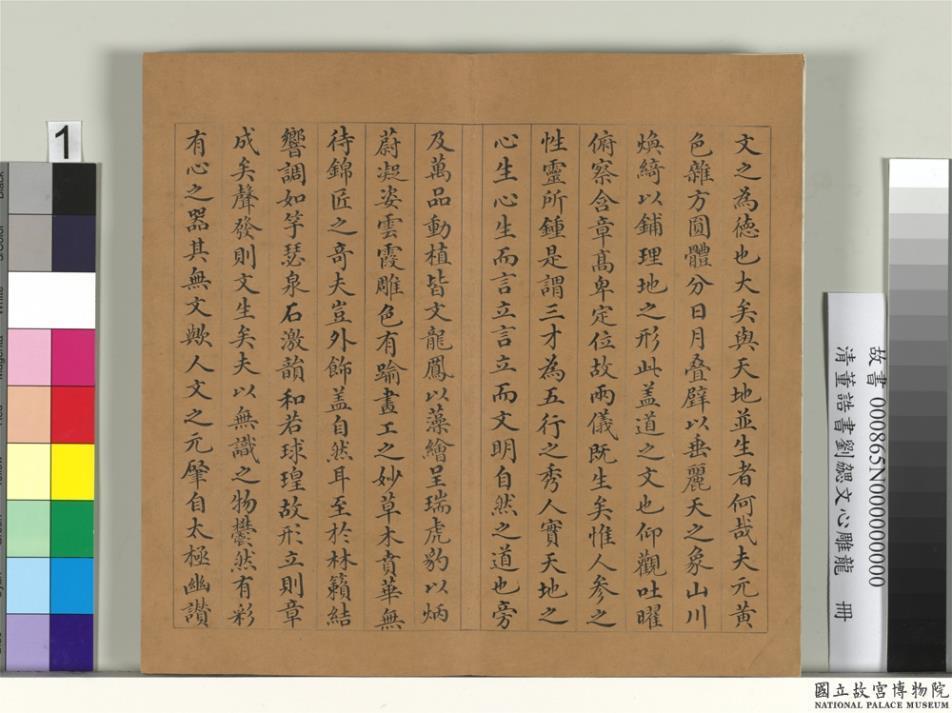 文之為德也大矣與天地並生者何哉夫元黃
色雜方圓體分日月叠璧以垂麗天之象山川
煥綺以鋪理地之形此盖道之文也仰觀吐曜
俯察含章髙卑定位故兩儀既生矣惟人参之
性靈所鍾是謂三才為五行之秀人實天地之
心生心生而言立言立而文明自然之道也旁
及萬品動植皆文龍鳳以藻繪呈瑞虎豹以炳
蔚凝姿雲霞雕色有踰畫工之妙草木賁華無
待錦匠之奇夫豈外飾盖自然耳至於林籟結
響調如竽瑟泉石激韻和若球瑝故形立則章
成矣聲發則文生矣夫以無識之物欝然有彩
有心之器其無文歟人文之元肇自太極幽讃
1
故書 000865N000000000
清董誥書劉勰文心雕龍 冊
國立故宮博物院
NATIONAL PALACE MUSEUM